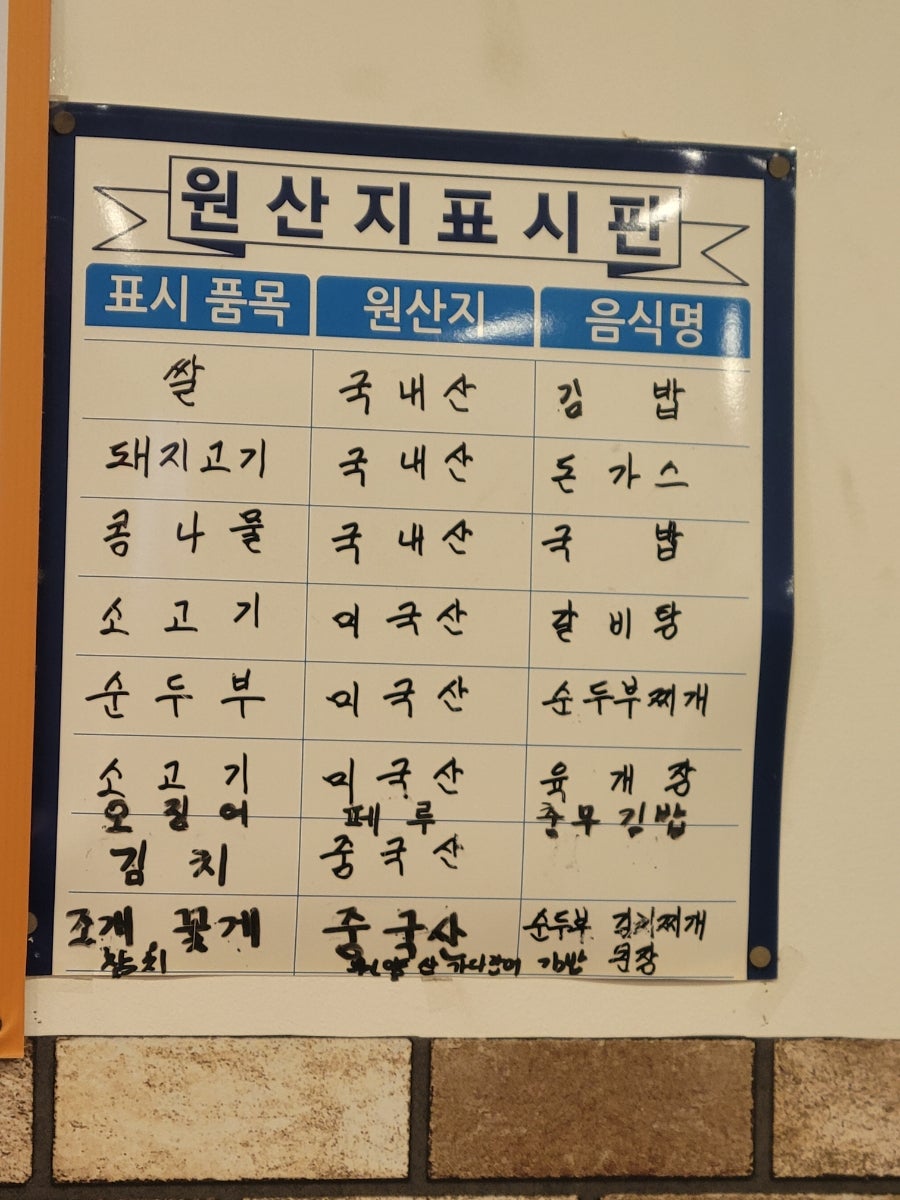 원산지표시판
표시 품목 원산지 음식명
쌀 국내산 김밥
돼지고기 국내산 돈가스
콩나물 국내산 국밥
소고기 미국산 갈비탕
순두부 미국산 순두부찌개
소고기 미국산 육개장
오징어 페루 충무김밥
김치 중국산
조개 꽃게 중국산 순두부 김치찌개
참치 김밥 된장